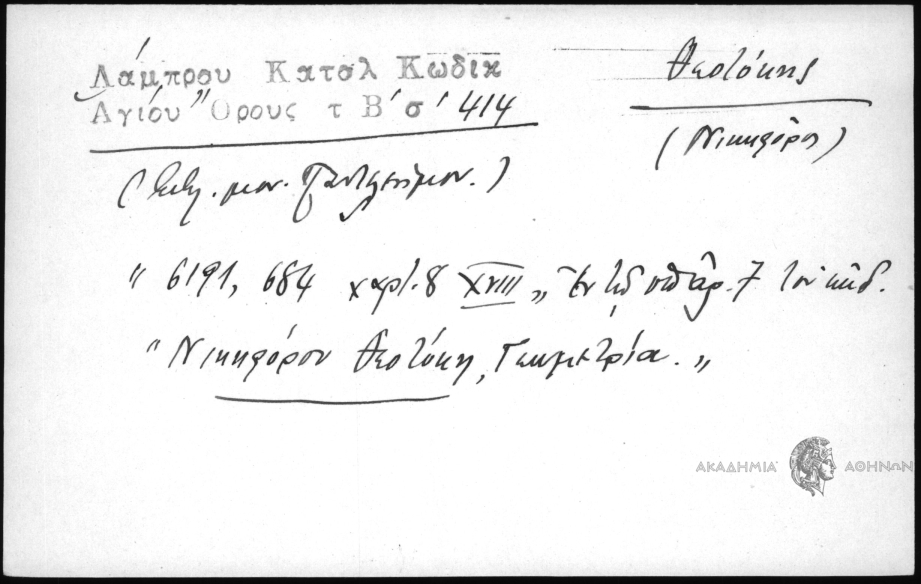 Λάμπρου Κατάλ Κωδικ
Ἁγίου Ὄρους τ Β' σ' 414
Θεοτόκης
(Νικηφόρος)
(Βιβλ. μον. Παντελεήμον.)
" 6191, 684 χαρτ. 8 XVIII „ Ἐν τῷ ὑπ' ἀρ. 7 τοῦ κώδ.
" Νικηφόρου Θεοτόκη, Γεωμετρία. „
ΑΚΑΔΗΜΙΑ ΑΘΗΝΩΝ